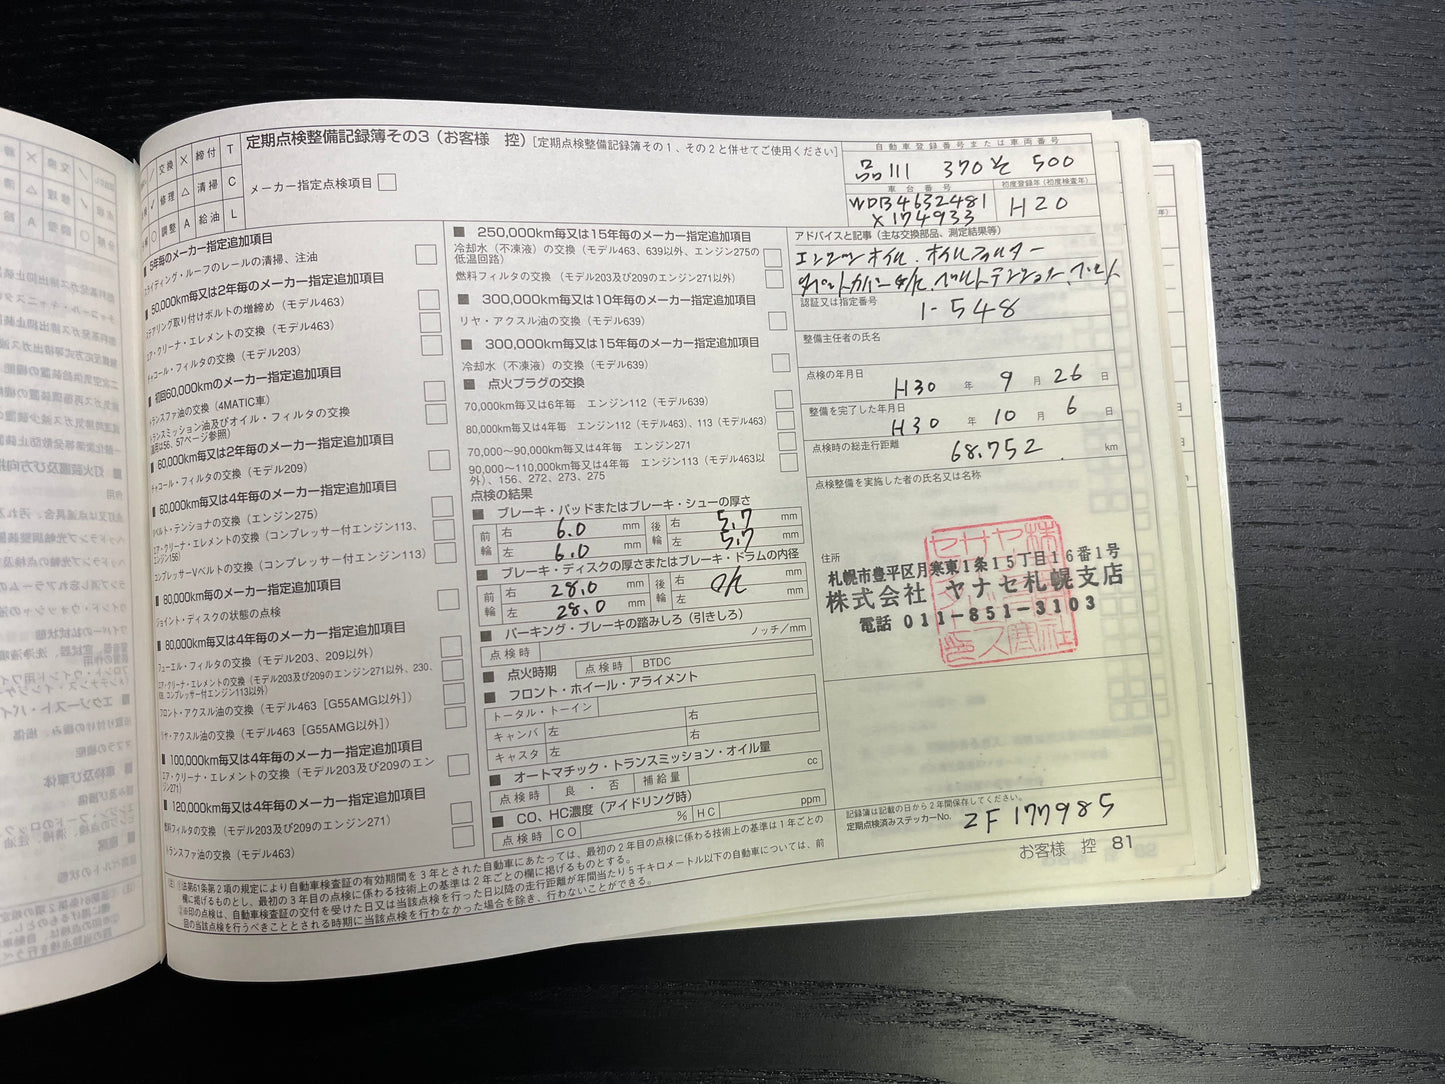 交換 × 締付 T
修理 △ 清掃 C
調整 A 給油 L
定期点検整備記録簿その3（お客様 控）[定期点検整備記録簿その1、その2と併せてご使用ください]
メーカー指定点検項目
5年毎のメーカー指定追加項目
スライディング・ルーフのレールの清掃、注油
50,000km毎又は2年毎のメーカー指定追加項目
ステアリング取り付けボルトの増締め（モデル463）
エア・クリーナ・エレメントの交換（モデル463）
チャコール・フィルタの交換（モデル203）
初回60,000kmのメーカー指定追加項目
トランスファ油の交換（4MATIC車）
トランスミッション油及びオイル・フィルタの交換
（適用は56、57ページ参照）
60,000km毎又は2年毎のメーカー指定追加項目
チャコール・フィルタの交換（モデル209）
60,000km毎又は4年毎のメーカー指定追加項目
Vベルト・テンショナの交換（エンジン275）
エア・クリーナ・エレメントの交換（コンプレッサー付エンジン113、
エンジン156）
コンプレッサーVベルトの交換（コンプレッサー付エンジン113）
80,000km毎のメーカー指定追加項目
ジョイント・ディスクの状態の点検
80,000km毎又は4年毎のメーカー指定追加項目
フューエル・フィルタの交換（モデル203、209以外）
エア・クリーナ・エレメントの交換（モデル203及び209のエンジン271以外、230、
コンプレッサー付エンジン113以外）
フロント・アクスル油の交換（モデル463［G55AMG以外］）
リヤ・アクスル油の交換（モデル463［G55AMG以外］）
100,000km毎又は4年毎のメーカー指定追加項目
エア・クリーナ・エレメントの交換（モデル203及び209のエン
ジン271）
120,000km毎又は4年毎のメーカー指定追加項目
燃料フィルタの交換（モデル203及び209のエンジン271）
トランスファ油の交換（モデル463）
250,000km毎又は15年毎のメーカー指定追加項目
冷却水（不凍液）の交換（モデル463、639以外、エンジン275の
低温回路）
燃料フィルタの交換（モデル203及び209のエンジン271以外）
300,000km毎又は10年毎のメーカー指定追加項目
リヤ・アクスル油の交換（モデル639）
300,000km毎又は15年毎のメーカー指定追加項目
冷却水（不凍液）の交換（モデル639）
点火プラグの交換
70,000km毎又は6年毎 エンジン112（モデル639）
80,000km毎又は4年毎 エンジン112（モデル463）、113（モデル463）
70,000～90,000km毎又は4年毎 エンジン271
90,000～110,000km毎又は4年毎 エンジン113（モデル463以
外）、156、272、273、275
点検の結果
ブレーキ・パッドまたはブレーキ・シューの厚さ
前輪 右 6.0 mm 後輪 右 5.7 mm
左 6.0 mm 左 5.7 mm
ブレーキ・ディスクの厚さまたはブレーキ・ドラムの内径
前輪 右 28.0 mm 後輪 右 O/K mm
左 28.0 mm 左 mm
パーキング・ブレーキの踏みしろ（引きしろ）
点検時 ノッチ/mm
点火時期 点検時 BTDC
フロント・ホイール・アライメント
トータル・トーイン
キャンバ 左 右
キャスタ 左 右
オートマチック・トランスミッション・オイル量
点検時 良・否 補給量 cc
CO、HC濃度（アイドリング時）
点検時 CO % HC ppm
自動車登録番号または車両番号
品川 370 そ 500
車台番号 初度登録年（初度検査年）
WDB4632481
X174933 H20
アドバイスと記事（主な交換部品、測定結果等）
エンジンオイル、オイルフィルター
タペットカバー O/K、ベルトテンショナー、ベルト
認証又は指定番号
1-548
整備主任者の氏名
点検の年月日
H30 年 9 月 26 日
整備を完了した年月日
H30 年 10 月 6 日
点検時の総走行距離
68,752 km
点検整備を実施した者の氏名又は名称
住所
札幌市豊平区月寒東1条15丁目16番1号
株式会社 ヤナセ札幌支店
電話 011-851-3103
記録簿は記載の日から2年間保存してください。
定期点検済みステッカーNo. ZF177985
(注) ①法第61条第2項の規定により自動車検査証の有効期間を3年とされた自動車にあたっては、最初の2年目の点検に係わる技術上の基準は1年ごとの
欄に掲げるものとし、最初の3年目の点検に係わる技術上の基準は2年ごとの欄に掲げるものとする。
②※印の点検は、自動車検査証の交付を受けた日又は当該点検を行った日以降の走行距離が年間当たり5千キロメートル以下の自動車については、前
回の当該点検を行うべきこととされる時期に当該点検を行わなかった場合を除き、行わないことができる。
お客様 控 81